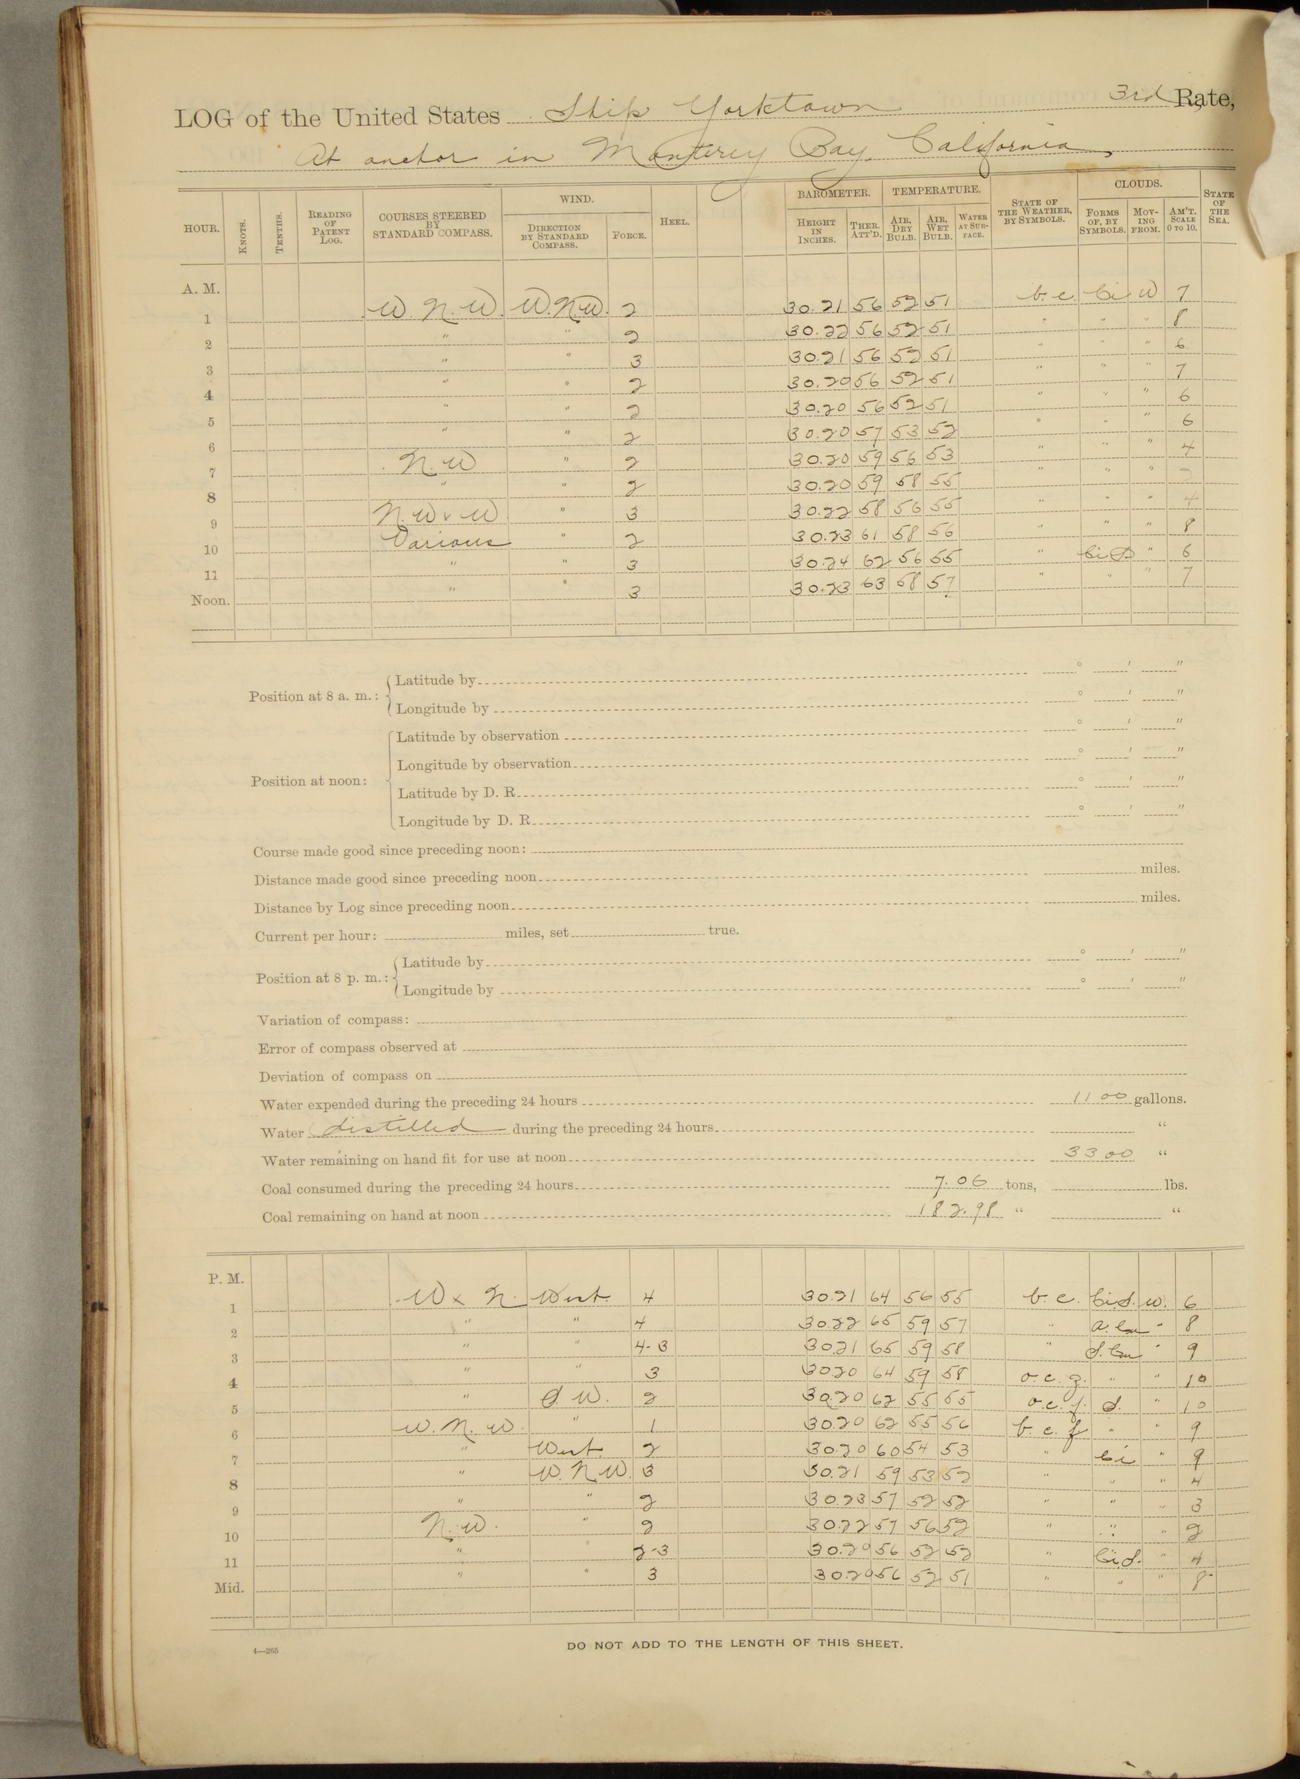 LOG of the United States Ship Yorktown 3rd Rate,
At anchor in Monterey Bay, California,
HOUR. KNOTS. TENTHS. READING OF PATENT LOG. COURSES STEERED BY STANDARD COMPASS. WIND. DIRECTION BY STANDARD COMPASS. FORCE. HEEL. BAROMETER. HEIGHT IN INCHES. THER. ATT'D. TEMPERATURE. AIR, DRY BULB. AIR, WET BULB. WATER AT SURFACE. STATE OF THE WEATHER, BY SYMBOLS. CLOUDS. FORMS OF, BY SYMBOLS. MOVING FROM. AM'T. SCALE 0 TO 10. STATE OF THE SEA.
A. M.
1 W. N. W. W. N. W. 2 30.21 56 52 51 b.c. Ci W 7
2 " " 2 30.22 56 52 51 " " " 8
3 " " 3 30.21 56 52 51 " " " 6
4 " " 2 30.20 56 52 51 " " " 7
5 " " 2 30.20 56 52 51 " " " 6
6 " " 2 30.20 57 53 52 " " " 6
7 N. W " 2 30.20 59 56 53 " " " 4
8 " " 2 30.20 59 58 55 " " " 2
9 N. W x W " 3 30.22 58 56 55 " " " 4
10 Various " 2 30.23 61 58 56 " " " 8
11 " " 3 30.24 62 56 55 " Ci S " 6
Noon. " " 3 30.23 63 58 57 " " " 7
Position at 8 a. m.: Latitude by ° ' "
Longitude by ° ' "
Position at noon: Latitude by observation ° ' "
Longitude by observation ° ' "
Latitude by D. R. ° ' "
Longitude by D. R. ° ' "
Course made good since preceding noon:
Distance made good since preceding noon miles.
Distance by Log since preceding noon miles.
Current per hour: miles, set true.
Position at 8 p. m.: Latitude by ° ' "
Longitude by ° ' "
Variation of compass:
Error of compass observed at
Deviation of compass on
Water expended during the preceding 24 hours 1100 gallons.
Water distilled during the preceding 24 hours "
Water remaining on hand fit for use at noon 3300 "
Coal consumed during the preceding 24 hours 7.06 tons, lbs.
Coal remaining on hand at noon 182.98 " "
P. M.
1 W x N. West. 4 30.21 64 56 55 b. c. Ci.S. W. 6
2 " " 4 30.22 65 59 57 " a. Cu " 8
3 " " 4-3 30.21 65 59 58 " S. Cu " 9
4 " " 3 30.20 64 59 58 o. c. g. " " 10
5 " S. W. 2 30.20 62 55 55 o. c. f. S. " 10
6 W. N. W. " 1 30.20 62 55 56 b. c. f " " 9
7 " West. 2 30.20 60 54 53 " Ci " 9
8 " W. N. W. 3 30.21 59 53 52 " " " 4
9 " " 2 30.23 57 52 52 " " " 3
10 N. W. " 2 30.22 57 56 52 " " " 2
11 " " 2-3 30.20 56 52 52 " Ci.S. " 4
Mid. " " 3 30.20 56 52 51 " " " 8
4—265 DO NOT ADD TO THE LENGTH OF THIS SHEET.